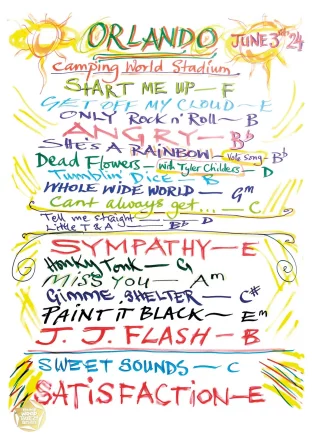 ORLANDO JUNE 3rd '24
Camping World Stadium
START ME UP — F
GET OFF MY CLOUD — E
ONLY Rock n' Roll — B
ANGRY — Bb
SHE'S A RAINBOW — Vote Song — Bb
Dead Flowers — with Tyler Childers — D
Tumblin' Dice — B
WHOLE WIDE WORLD — Gm
Cant always get.... — C
Tell me straight — D
Little T & A — Eb
SYMPATHY — E
Honky Tonk — G
MISS YOU — Am
GIMME SHELTER — C#
PAINT IT BLACK — Em
J. J. FLASH — B
SWEET SOUNDS — C
SATISFACTION — E